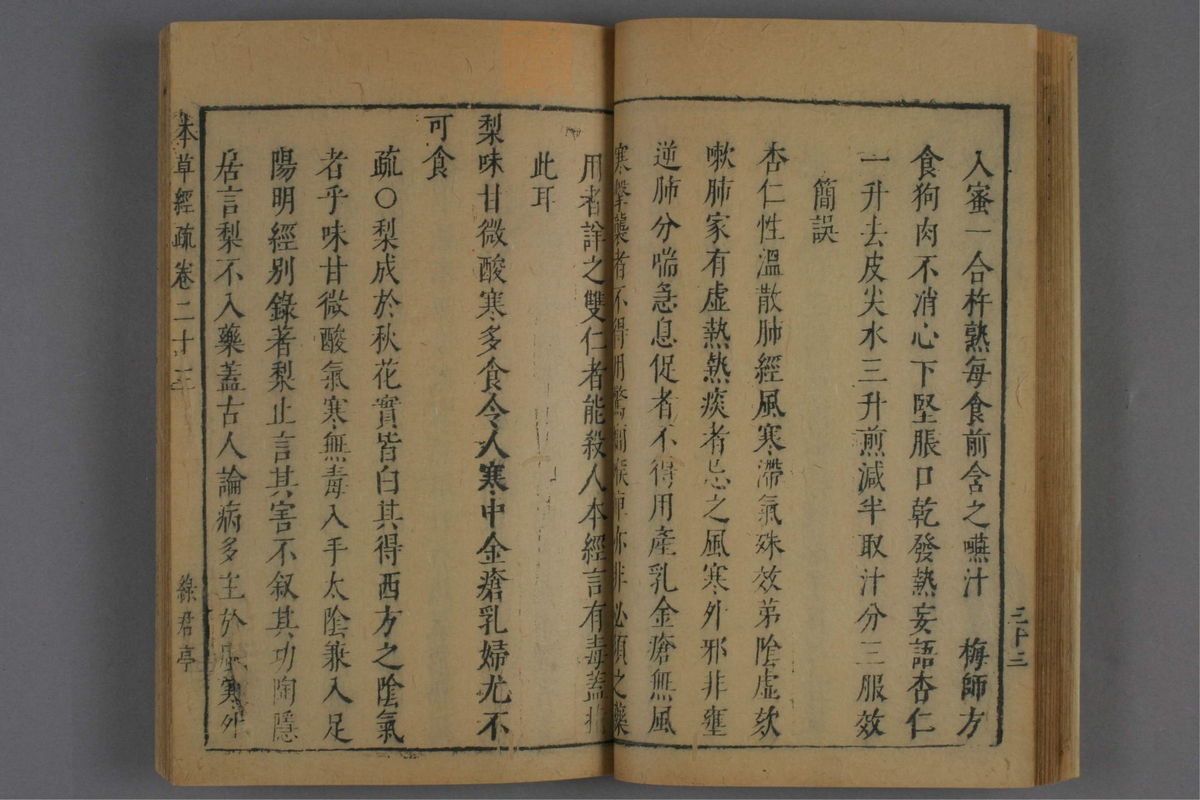 三十三
入蜜一合杵熟每食前含之嚥汁　梅師方
食狗肉不消心下堅脹口乾發熱妄語杏仁
一升去皮尖水三升煎減半取汁分三服效
簡誤
杏仁性溫散肺經風寒滯氣殊效第陰虛欬
嗽肺家有虛熱熱痰者忌之風寒外邪非壅
逆肺分喘急息促者不得用產乳金瘡無風
寒擊襲者不得用驚癎喉痺亦非必須之藥
用者詳之雙仁者能殺人本經言有毒蓋指
此耳
梨味甘微酸寒多食令人寒中金瘡乳婦尤不
可食
疏〇梨成於秋花實皆白其得西方之陰氣
者乎味甘微酸氣寒無毒入手太陰兼入足
陽明經別錄著梨止言其害不叙其功陶隱
居言梨不入藥蓋古人論病多主於風寒外
本草經疏　卷二十三　綠君亭